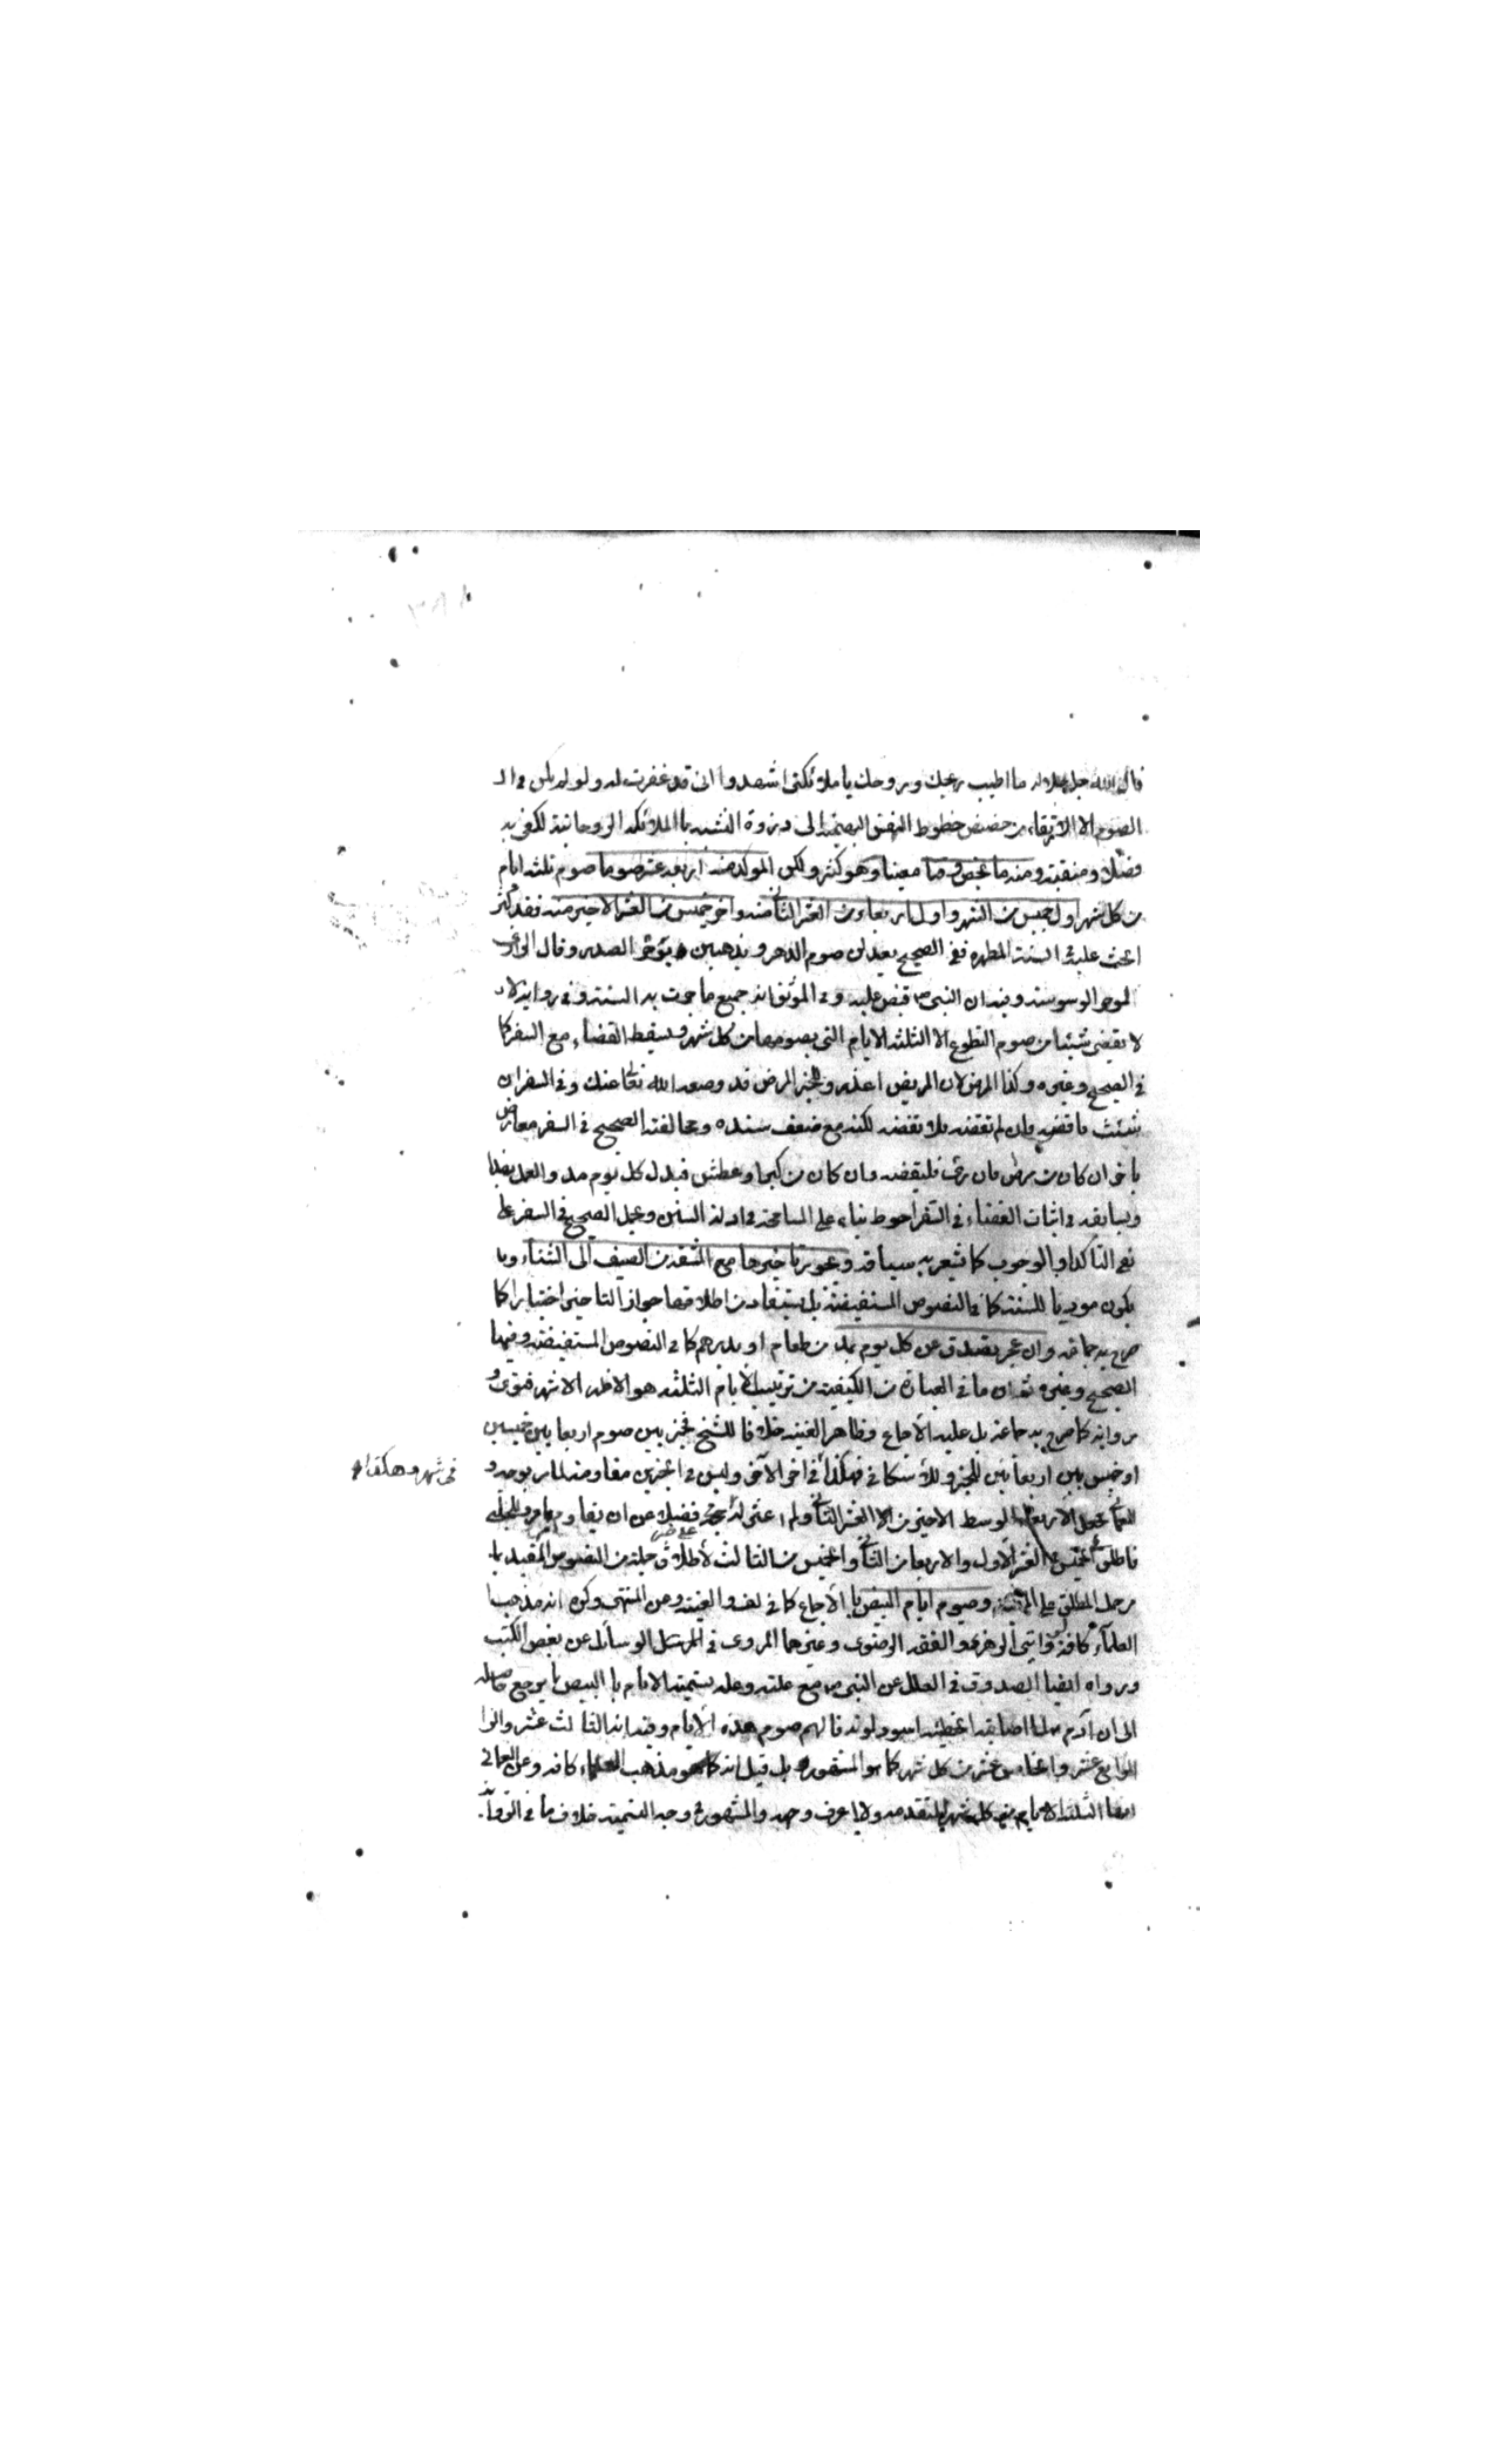 قال الله جل جلاله ما اطيب ريحك وروحك يا ملائكتى اشهدوا انى قد غفرت له ولو لم يكن فى الـ
الصوم الا الارتقاء من حضيض حظوظ النفس البهيمية الى ذروة التشبه باالملائكة الروحانية لكفى به
فضلا ومنقبة ومنه ما يختص وقتا معينا وهو كثير ولكن المؤكد منه اربعة عشر صوما صوم ثلثه ايام
من كل شهر اول خميس من الشهر واول اربعاء من العشر الثانى منه واخر خميس من العشر الاخير منه فقد كثر
الحث عليه فى السنة المطهره ففى الصحيح يعدلن صوم الدهر ويذهبن بوحر الصدر وقال الراوى
الوحر الوسوسه وفيه ان النبى ص قبض عليه وفى الموثق انه جميع ما جرت به السنة وفى رواية لا
لا يقضى شيئا من صوم التطوع الا الثلثه الايام التى يصومها من كل شهر ويسقط القضاء مع السفر كما
فى الصحيح وغيره وكذا المرض لان المريض اعذر وللخبر المرض قد وضعه الله تعالى عنك وفى السفر ان
شئت فاقضه وان لم تقضه فلا تقضه لكنه مع ضعف سنده ومخالفته الصحيح فى السفر معارض
باخر ان كان من مرض فان برئ فليقضه وان كان من كبر او عطش فبدل كل يوم مد والعمل بهذا
وبسابقه فى اثبات القضاء فى السفر احوط بناء على المسامحة فى ادلة السنن وحمل الصحيح فى السفر على
نفى التاكد او الوجوب كما يشعر به سياقه ويجوز تاخيرها مع المشقة من الصيف الى الشتاء وبه
يكون مؤديا للسنة كما فى النصوص المستفيضة بل يستفاد من اطلاقها جواز التاخير اختيارا كما
صرح به جماعة وان عجز يتصدق عن كل يوم بمد من طعام او بدرهم كما فى النصوص المستفيضه وفيها
الصحيح وغيره ثم ان ما فى العبارة من الكيفية من ترتيب الايام الثلثه هو الاظهر الاشهر فتوى و
رواية كما صرح به جماعة بل عليه الاجماع فى ظاهر الغنيه خلافا للشيخ فخير بين صوم اربعا بين خميسين
او خميس بين اربعائين للخبر وللاسكافى فهكذا فى اخر الآخر وليس فى الخبرين مقاومة لما مر بوجه و
للعمانى فجعل الاربعاء الوسط الاخير من الا العشر الثانى ولم اعثر له على خبر فضلا عن ان يقاوم ما مر وللحلبى
فاطلق الخميس من العشر الاول والاربعا من الثانى والخميس من الثالث لاطلاق جملة من النصوص المقيد بما
مر حمل المطلق على المقيد وصوم ايام البيض با الاجماع كما فى لف والغنيه وعن المنتهى وكره انه مذهب
العلماء كافة وفى رواية الزهرى والفقه الرضوى وغيرهما المروى فى الوسائل عن بعض الكتب
ورواه ايضا الصدوق فى العلل عن النبى ص مع علته وعلة تسمية الايام با البيض بما يرجع حاصله
الى ان آدم ع لما اصابته الخطيئه اسود لونه فالهم صوم هذه الايام وفيه انها الثالث عشر والرا
الرابع عشر والخامس عشر من كل شهر كما هو المشهور بل قيل انه كانه هو مذهب العلماء كافه وعن العمانى
انها الثلثه الايام من كل شهر المتقدمه ولا اعرف وجهه والمشهور فى وجه التسمية خلاف ما فى الرواية
فى شهر وهكذا